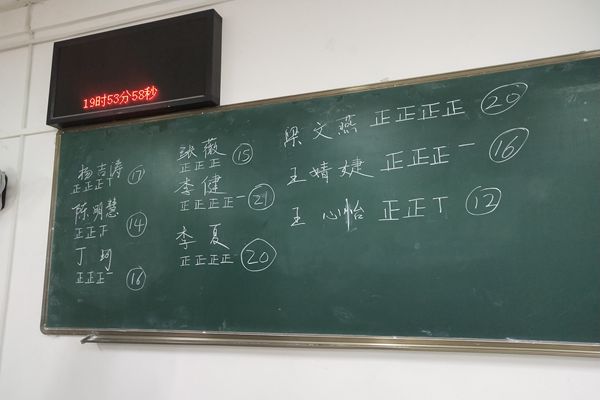 19时53分58秒
杨吉涛
正正正丅 17
陈明慧
正正下 14
丁珂
正正正一 16
张薇
正正正 15
李健
正正正正一 21
李夏
正正正正 20
梁文燕 正正正正 20
王婧婕 正正正一 16
王心怡 正正丅 12